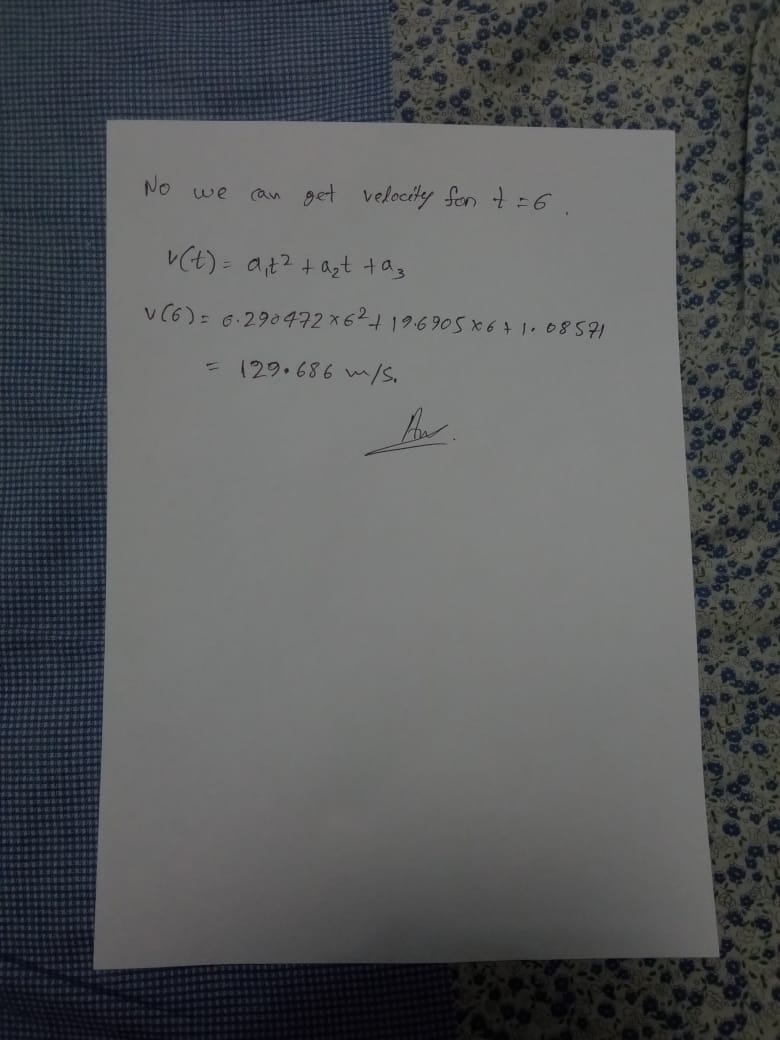 No we can get velocity for t = 6.
v(t) = a₁t² + a₂t + a₃
v(6) = 0.290472 × 6² + 19.6905 × 6 + 1.08571
= 129.686 m/s.
Ans.